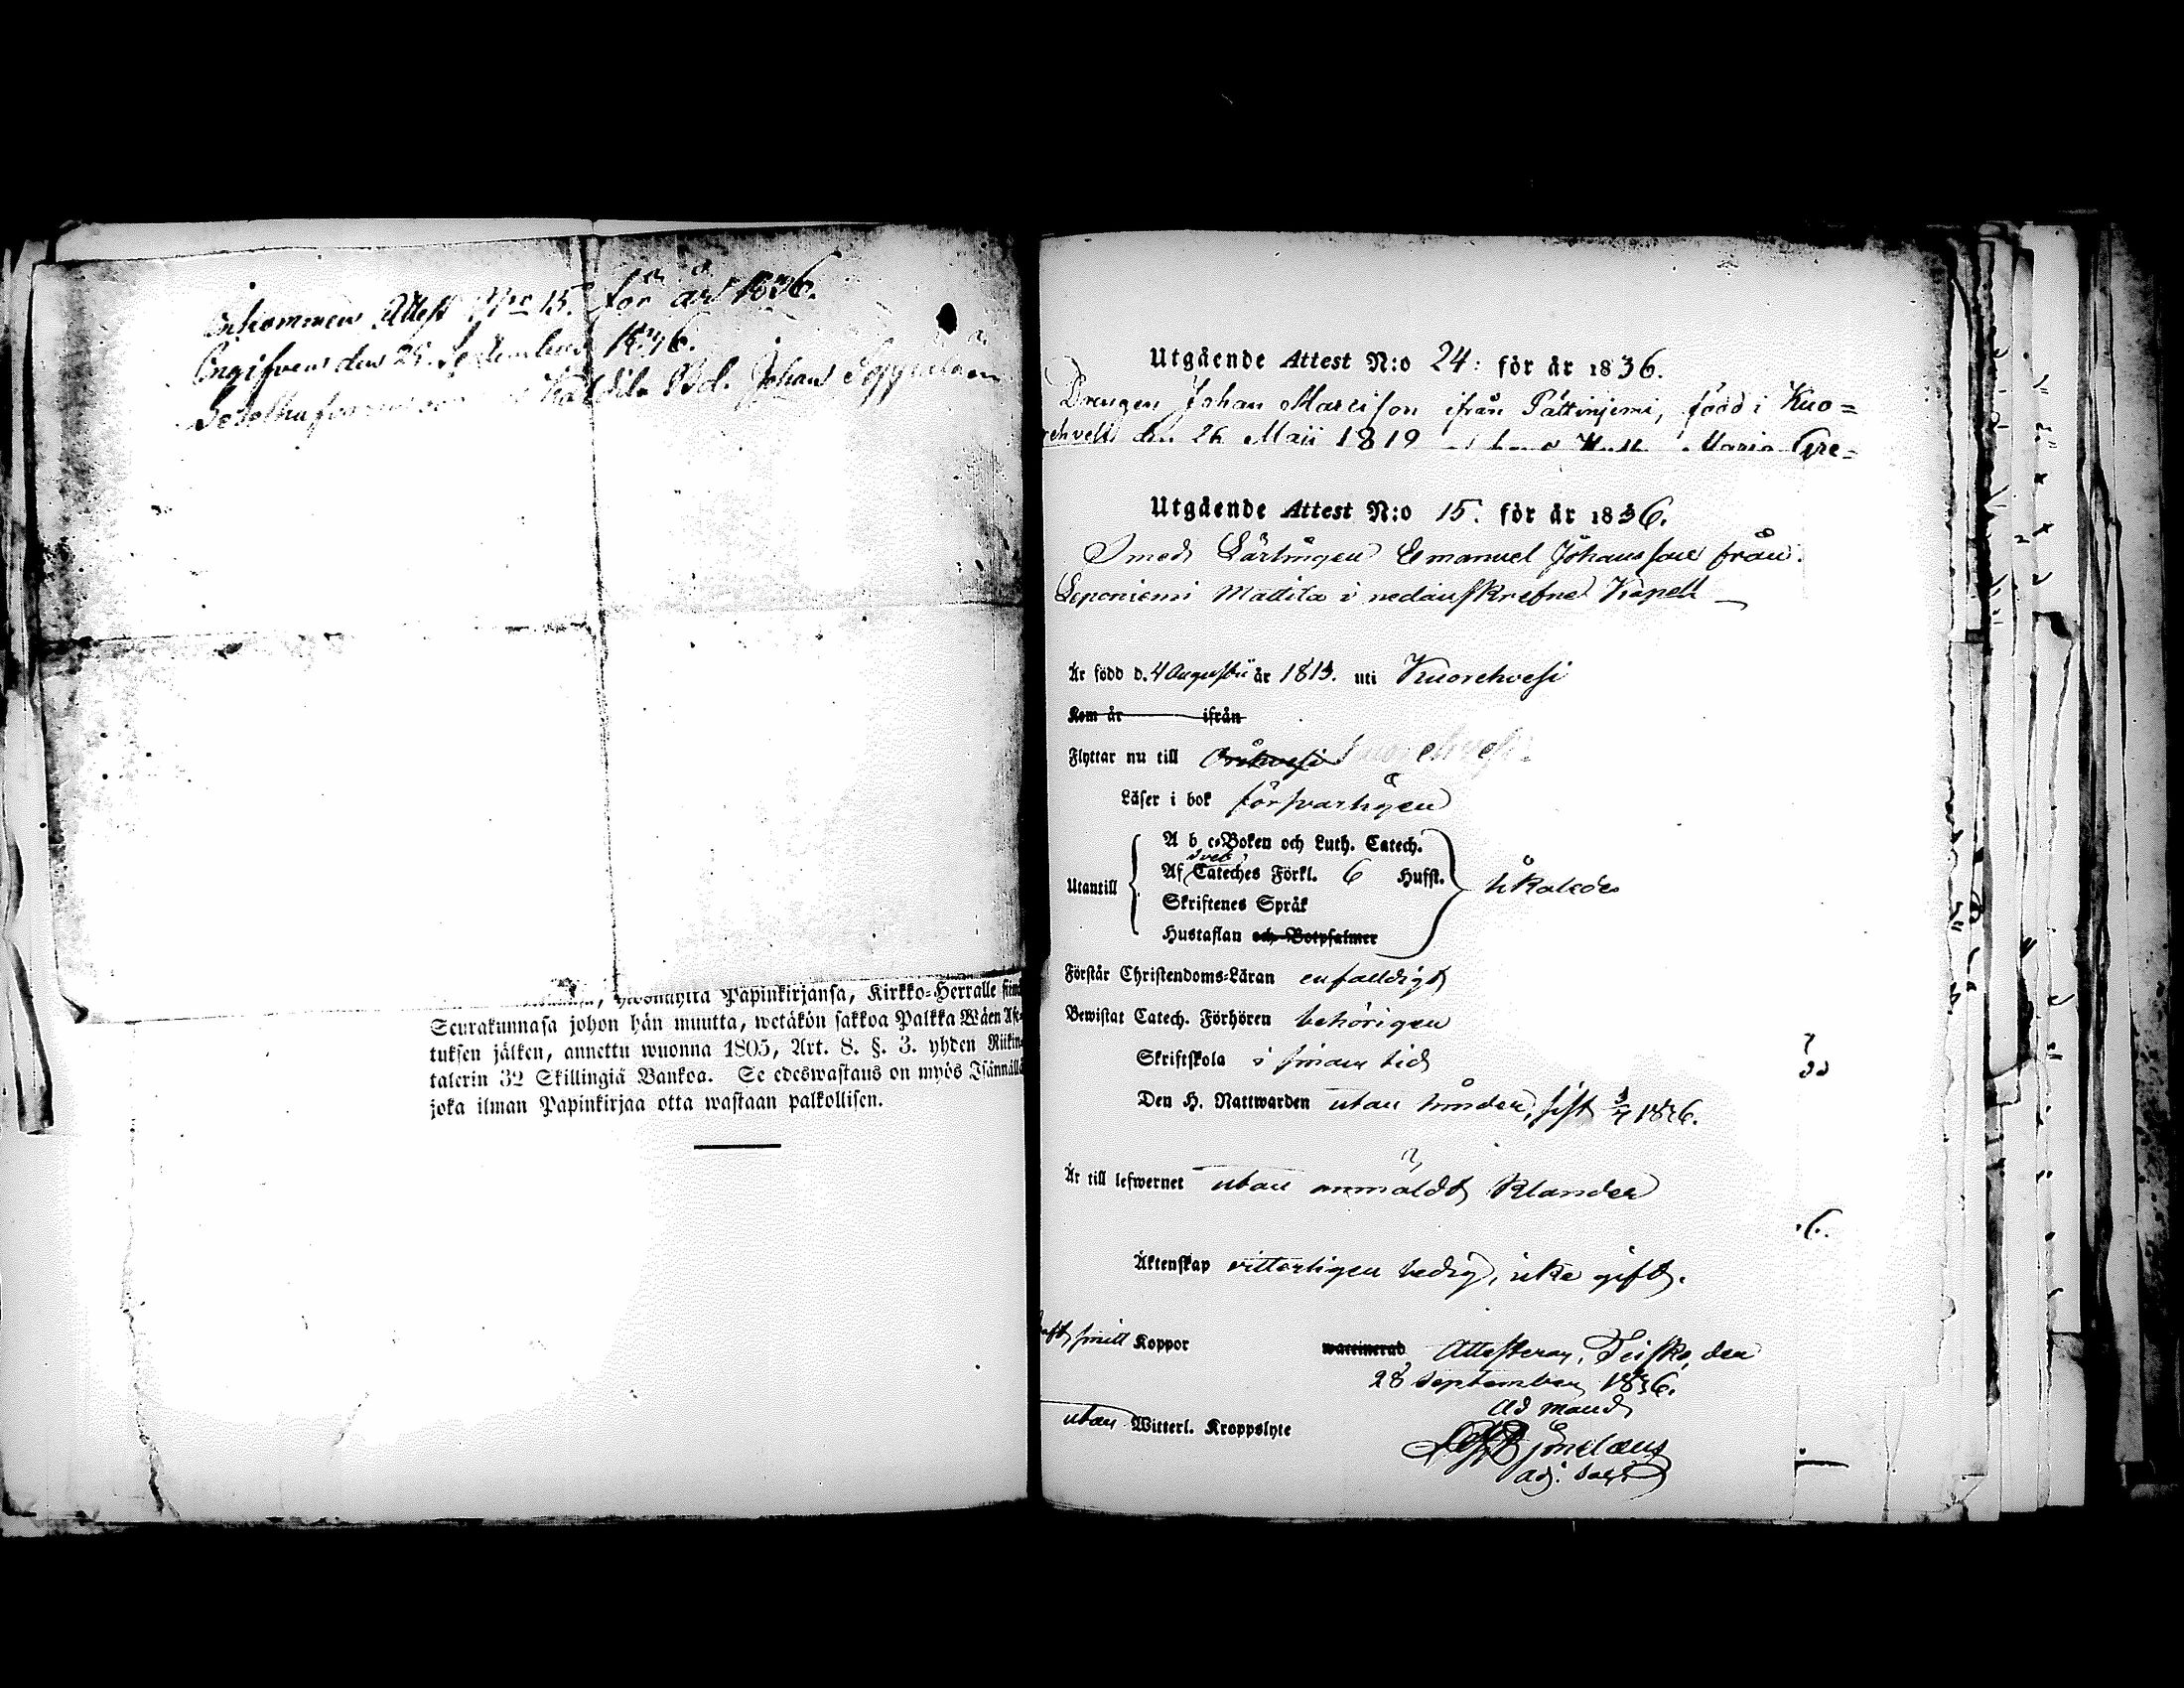 Inkommen Attest N:o 15. för år 1836.
Ingifven den 29. September 1836.
Johan Seppälän
Papinkirjansa, Kirkko-Herralle siinä
Seurakunnasa johon hän muutta, wetäkön sakkoa Palkka Wäen Ase-
tuksen jälken, annettu wuonna 1805, Art. 8. §. 3. yhden Riikin-
talerin 32 Skillingiä Bankoa. Se edeswastaus on myös Isännällä
joka ilman Papinkirjaa otta wastaan palkollisen.
Utgående Attest N:o 24: för år 1836.
Drengen Johan Mareisson ifrån Pättinjemi, född i Kuo=
rehvesi den 26 Maii 1819 Maria Gre=
Utgående Attest N:o 15. för år 1836.
Smeds Lärlingen Emanuel Johansson från
Leponiemi Mattila i nedanskrefne Kapell
Är född d. 4 Augusti år 1813. uti Kuorehvesi
Kom år ifrån
Flyttar nu till Orihvesi Kuorehvesi
Läser i bok försvarligen
Utantill
A b c-Boken och Luth. Catech.
Sveb.
Af Cateches Förkl. 6 Hufst.
Skriftenes Språk
Hustaflan och Botpsalmer
likaledes
Förstår Christendoms-Läran enfaldigt
Bewistat Catech. Förhören behörigen
Skriftskola i sinom tid
Den H. Nattwarden utan hinder, sist 3/7 1836.
Är till lefwernet utan anmäldt klander
6.
Äktenskap vitterligen ledig, icke gift.
haft smitt Koppor
waccinerad Attesterar, Teisko, den
28 September 1836.
Ad mand.
utan Witterl. Kroppslyte
adj. sacri